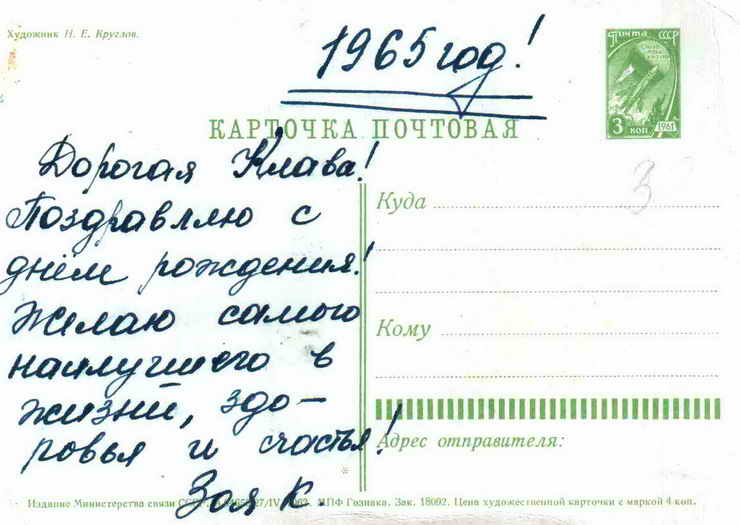 Художник Н. Е. Круглов.
1965 год!
ПОЧТА СССР
3 КОП 1961
КАРТОЧКА ПОЧТОВАЯ
3
Дорогая Клава!
Поздравляю с
днём рождения!
Желаю самого
наилучшего в
жизни, здо-
ровья и счастья!
Зоя К.
Куда
Кому
Адрес отправителя:
Издание Министерства связи МПФ Гознака. Зак. 18092. Цена художественной карточки с маркой 4 коп.